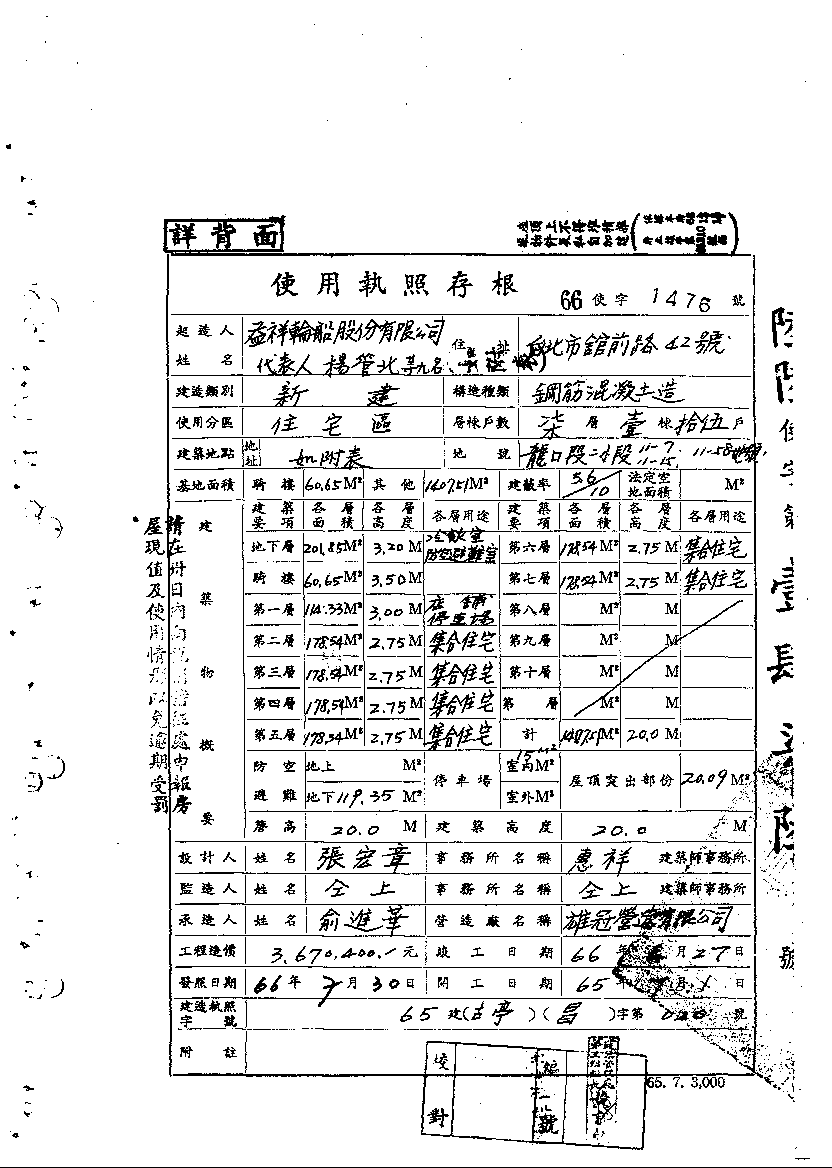 詳背面
屋頂上不得
使用執照存根
66 使字 1476 號
起造人 姓名 益祥輪船股份有限公司 代表人 楊管北 等九名 住址 台北市館前路42號
建造類別 新建 構造種類 鋼筋混凝土造
使用分區 住宅區 層棟戶數 柒層壹棟拾伍戶
建築地點 地址 如附表 地號 龍口段二小段 11-7 11-15 11-58地號
基地面積 騎樓 60.65M² 其他 1407.51M² 建蔽率 5.6/10 法定空地面積 M²
建築要項 各層面積 各層高度 各層用途 建築要項 各層面積 各層高度 各層用途
地下層 201.85M² 3.20M 防空避難室 第六層 178.54M² 2.75M 集合住宅
騎樓 60.65M² 3.50M 第七層 178.54M² 2.75M 集合住宅
第一層 114.33M² 3.00M 店舖 停車場 第八層 M² M
第二層 178.54M² 2.75M 集合住宅 第九層 M² M
第三層 178.54M² 2.75M 集合住宅 第十層 M² M
第四層 178.54M² 2.75M 集合住宅 第 層 M² M
第五層 178.54M² 2.75M 集合住宅 計 20.0M
防空 地上 M² 停車場 室內 15M² 屋頂突出部份 20.09M²
避難 地下 119.35M² 室外M²
簷高 20.0M 建築高度 20.0M
建築物概要
設計人 姓名 張宏章 事務所名稱 惠祥 建築師事務所
監造人 姓名 仝上 事務所名稱 仝上 建築師事務所
承造人 姓名 俞進華 營造廠名稱 雄冠營造有限公司
工程造價 3,670,400.元 竣工日期 66年 月27日
發照日期 66年7月30日 開工日期 65年 月1日
建造執照字號 65建(古亭)(昌)字第 號
附註
校對
號
65.7.3,000
請在卅日內向稅捐稽征處申報房
屋現值及使用情形以免逾期受罰
使字第壹
號